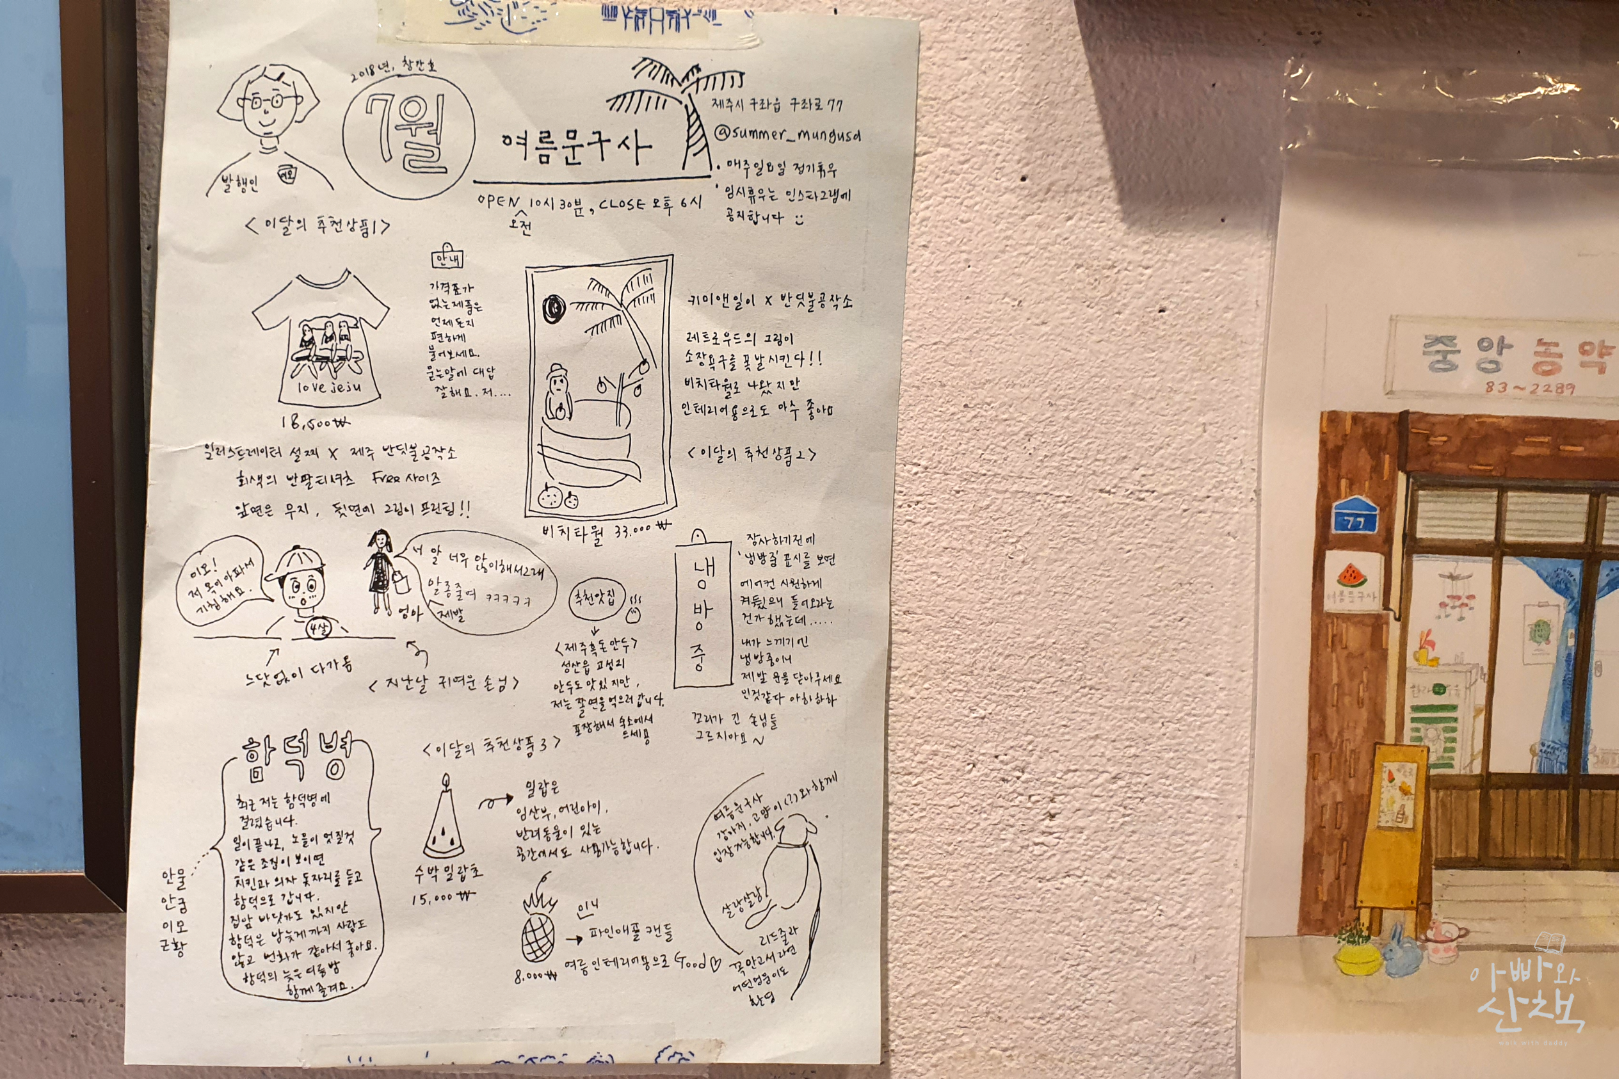 2018년, 창간호
7월
발행인
여름
여름문구사
OPEN 10시 30분, CLOSE 오후 6시
오전
제주시 구좌읍 구좌로 77
@summer_mungusa
• 매주일요일 정기휴무
• 임시휴무는 인스타그램에
공지합니다
<이달의 추천상품1>
love jeju
18,500₩
일러스트레이터 설찌 X 제주 반딧불공작소
회색의 반팔티셔츠 Free 사이즈
앞면은 무지, 뒷면에 그림이 프린팅!!
안내
가격표가
없는제품은
언제든지
편하게
물어보세요.
묻는말에 대답
잘해요. 저....
키미앤일이 X 반딧불공작소
레트로무드의 그림이
소장욕구를 폭발시킨다!!
비치타월로 나왔지만
인테리어용으로도 아주 좋아요
<이달의 추천상품2>
비치타월 33,000₩
이모!
저 목이아파서
기침해요.
4살
느닷없이 다가옴
엄마
너 말 너무 많이해서그래
말좀줄여 ㅋㅋㅋㅋㅋ
제발
<지난날 귀여운 손님>
추천맛집
<제주흑돈만두>
성산읍 고성리
만두도 맛있지만,
저는 쫄면을 먹으러 갑니다.
포장해서 숙소에서
드세용
냉방중
장사하기전에
'냉방중' 표시를 보면
에어컨 시원하게
켜뒀으니 들어오라는
건가 했는데.....
내가 느끼기엔
냉방중이니
제발 문을 닫아주세요
인것같다 아하하하
꼬리가 긴 손님들
그르지마요~
함덕병
최근 저는 함덕병에
걸렸습니다.
일이끝나고, 노을이 멋질것
같은 조짐이 보이면
치킨과 의자 돗자리를 들고
함덕으로 갑니다.
집앞 바닷가도 있지만
함덕은 밤늦게까지 사람도
많고 번화가 같아서 좋아요.
함덕의 늦은여름밤
함께 즐겨요.
안물
안궁
이모
근황
<이달의 추천상품3>
수박밀랍초
15,000₩
밀랍은
임산부, 어린아이,
반려동물이 있는
공간에서도 사용가능합니다.
인니
파인애플캔들
8,000₩
여름인테리어용으로 Good
여름문구사
강아지, 고양이(?)와함께
입장가능합니다
살랑살랑
리드줄과
꼭안고서라면
어떤멈뭄이도
환영
중앙농약
83~2289
77
여름문구사
아빠와
산책
walk with daddy